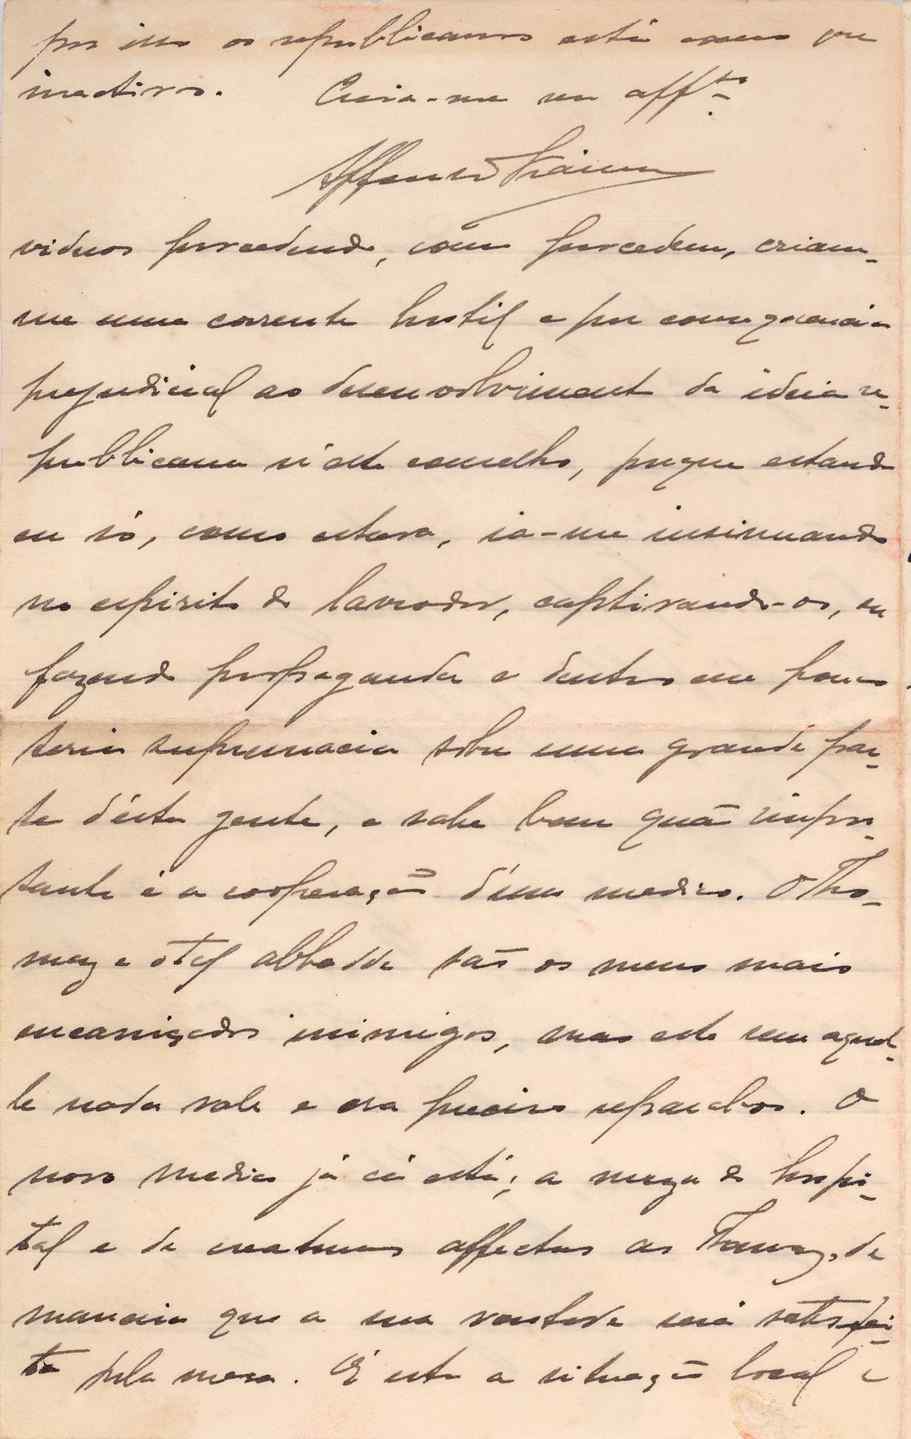 por isso os republicanos está como que
inactivos. Creia-me seu aff.to
Affonso Vianna
viduos procedendo, como procedem, criam-
me uma corrente hostil e por consequencia
prejudicial ao desenvolviment da ideia re-
publicana n'este concelho, porque estando
eu só, como estava, ia-me insinuando
no espirito do lavrador, captivando-os,
fazendo propaganda e dentro em pouco
teria supremacia sobre uma grande par-
te d'esta gente, e sabe bem quão impor-
tante é a cooperação d'um medico. O Tho-
maz e o tal abbade são os meus mais
encarniçados inimigos, mas este sem aquel-
le nada vale e era preciso separal-os. O
novo medico já cá está; a meza do hospi-
tal e de creaturas affectas ao Thomaz, de
maneira que a sua vontade será satisfei-
ta pela meza. É esta a situação local e